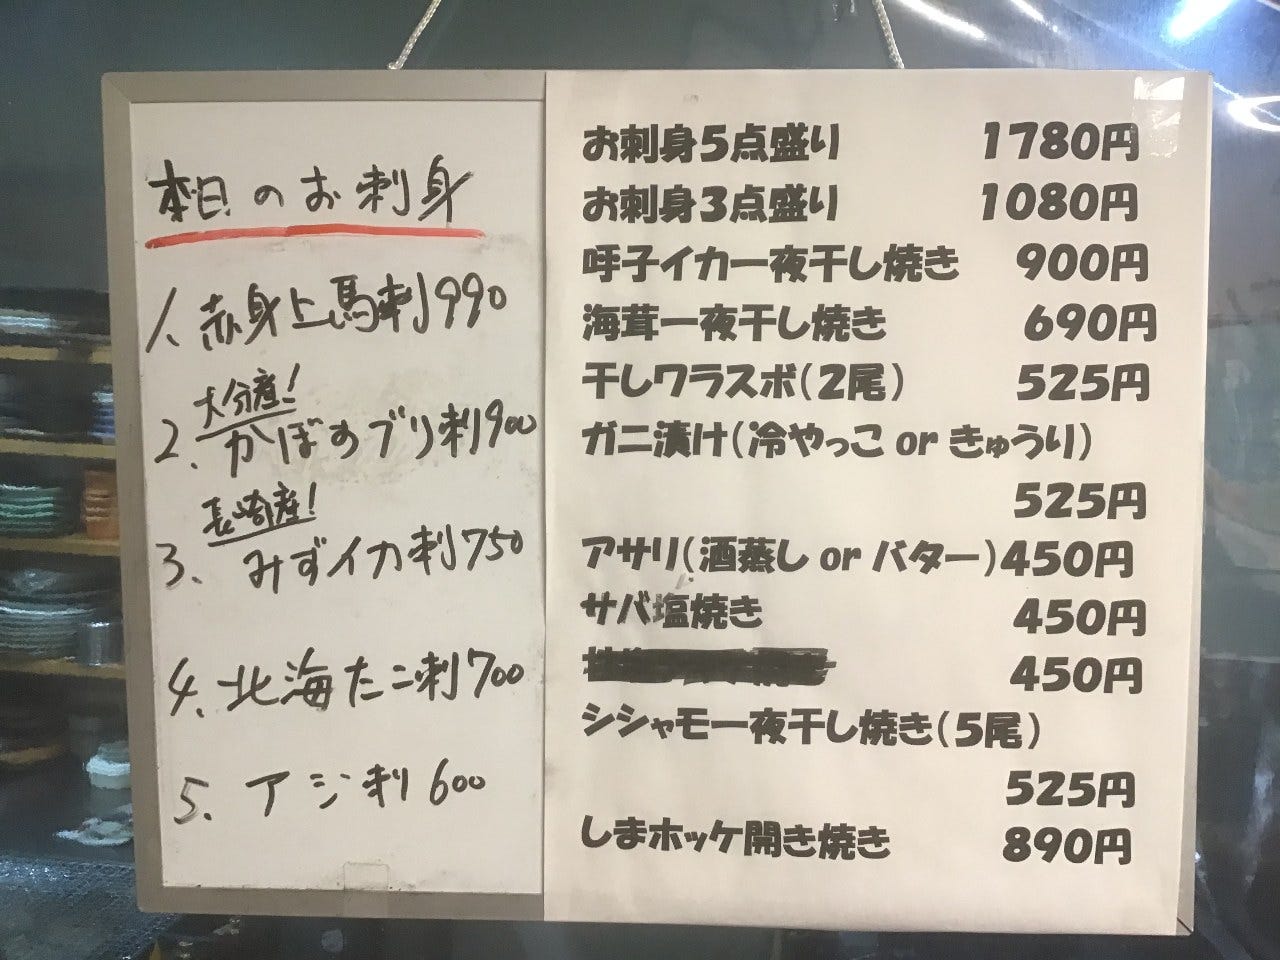 本日のお刺身
1. 赤身上馬刺 990
大分産!
2. かぼすブリ刺 900
長崎産!
3. みずイカ刺 750
4. 北海たこ刺 700
5. アジ刺 600
お刺身5点盛り 1780円
お刺身3点盛り 1080円
呼子イカ一夜干し焼き 900円
海茸一夜干し焼き 690円
干しワラスボ(2尾) 525円
ガニ漬け(冷やっこ or きゅうり)
525円
アサリ(酒蒸し or バター) 450円
サバ塩焼き 450円
450円
シシャモ一夜干し焼き(5尾)
525円
しまホッケ開き焼き 890円